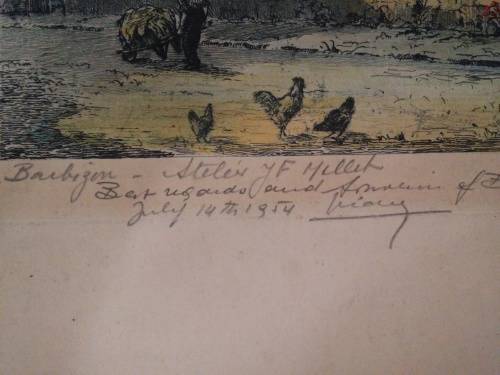 Barbizon - Atelier JF Millet
Best regards and souvenir of B
July 14th 1954